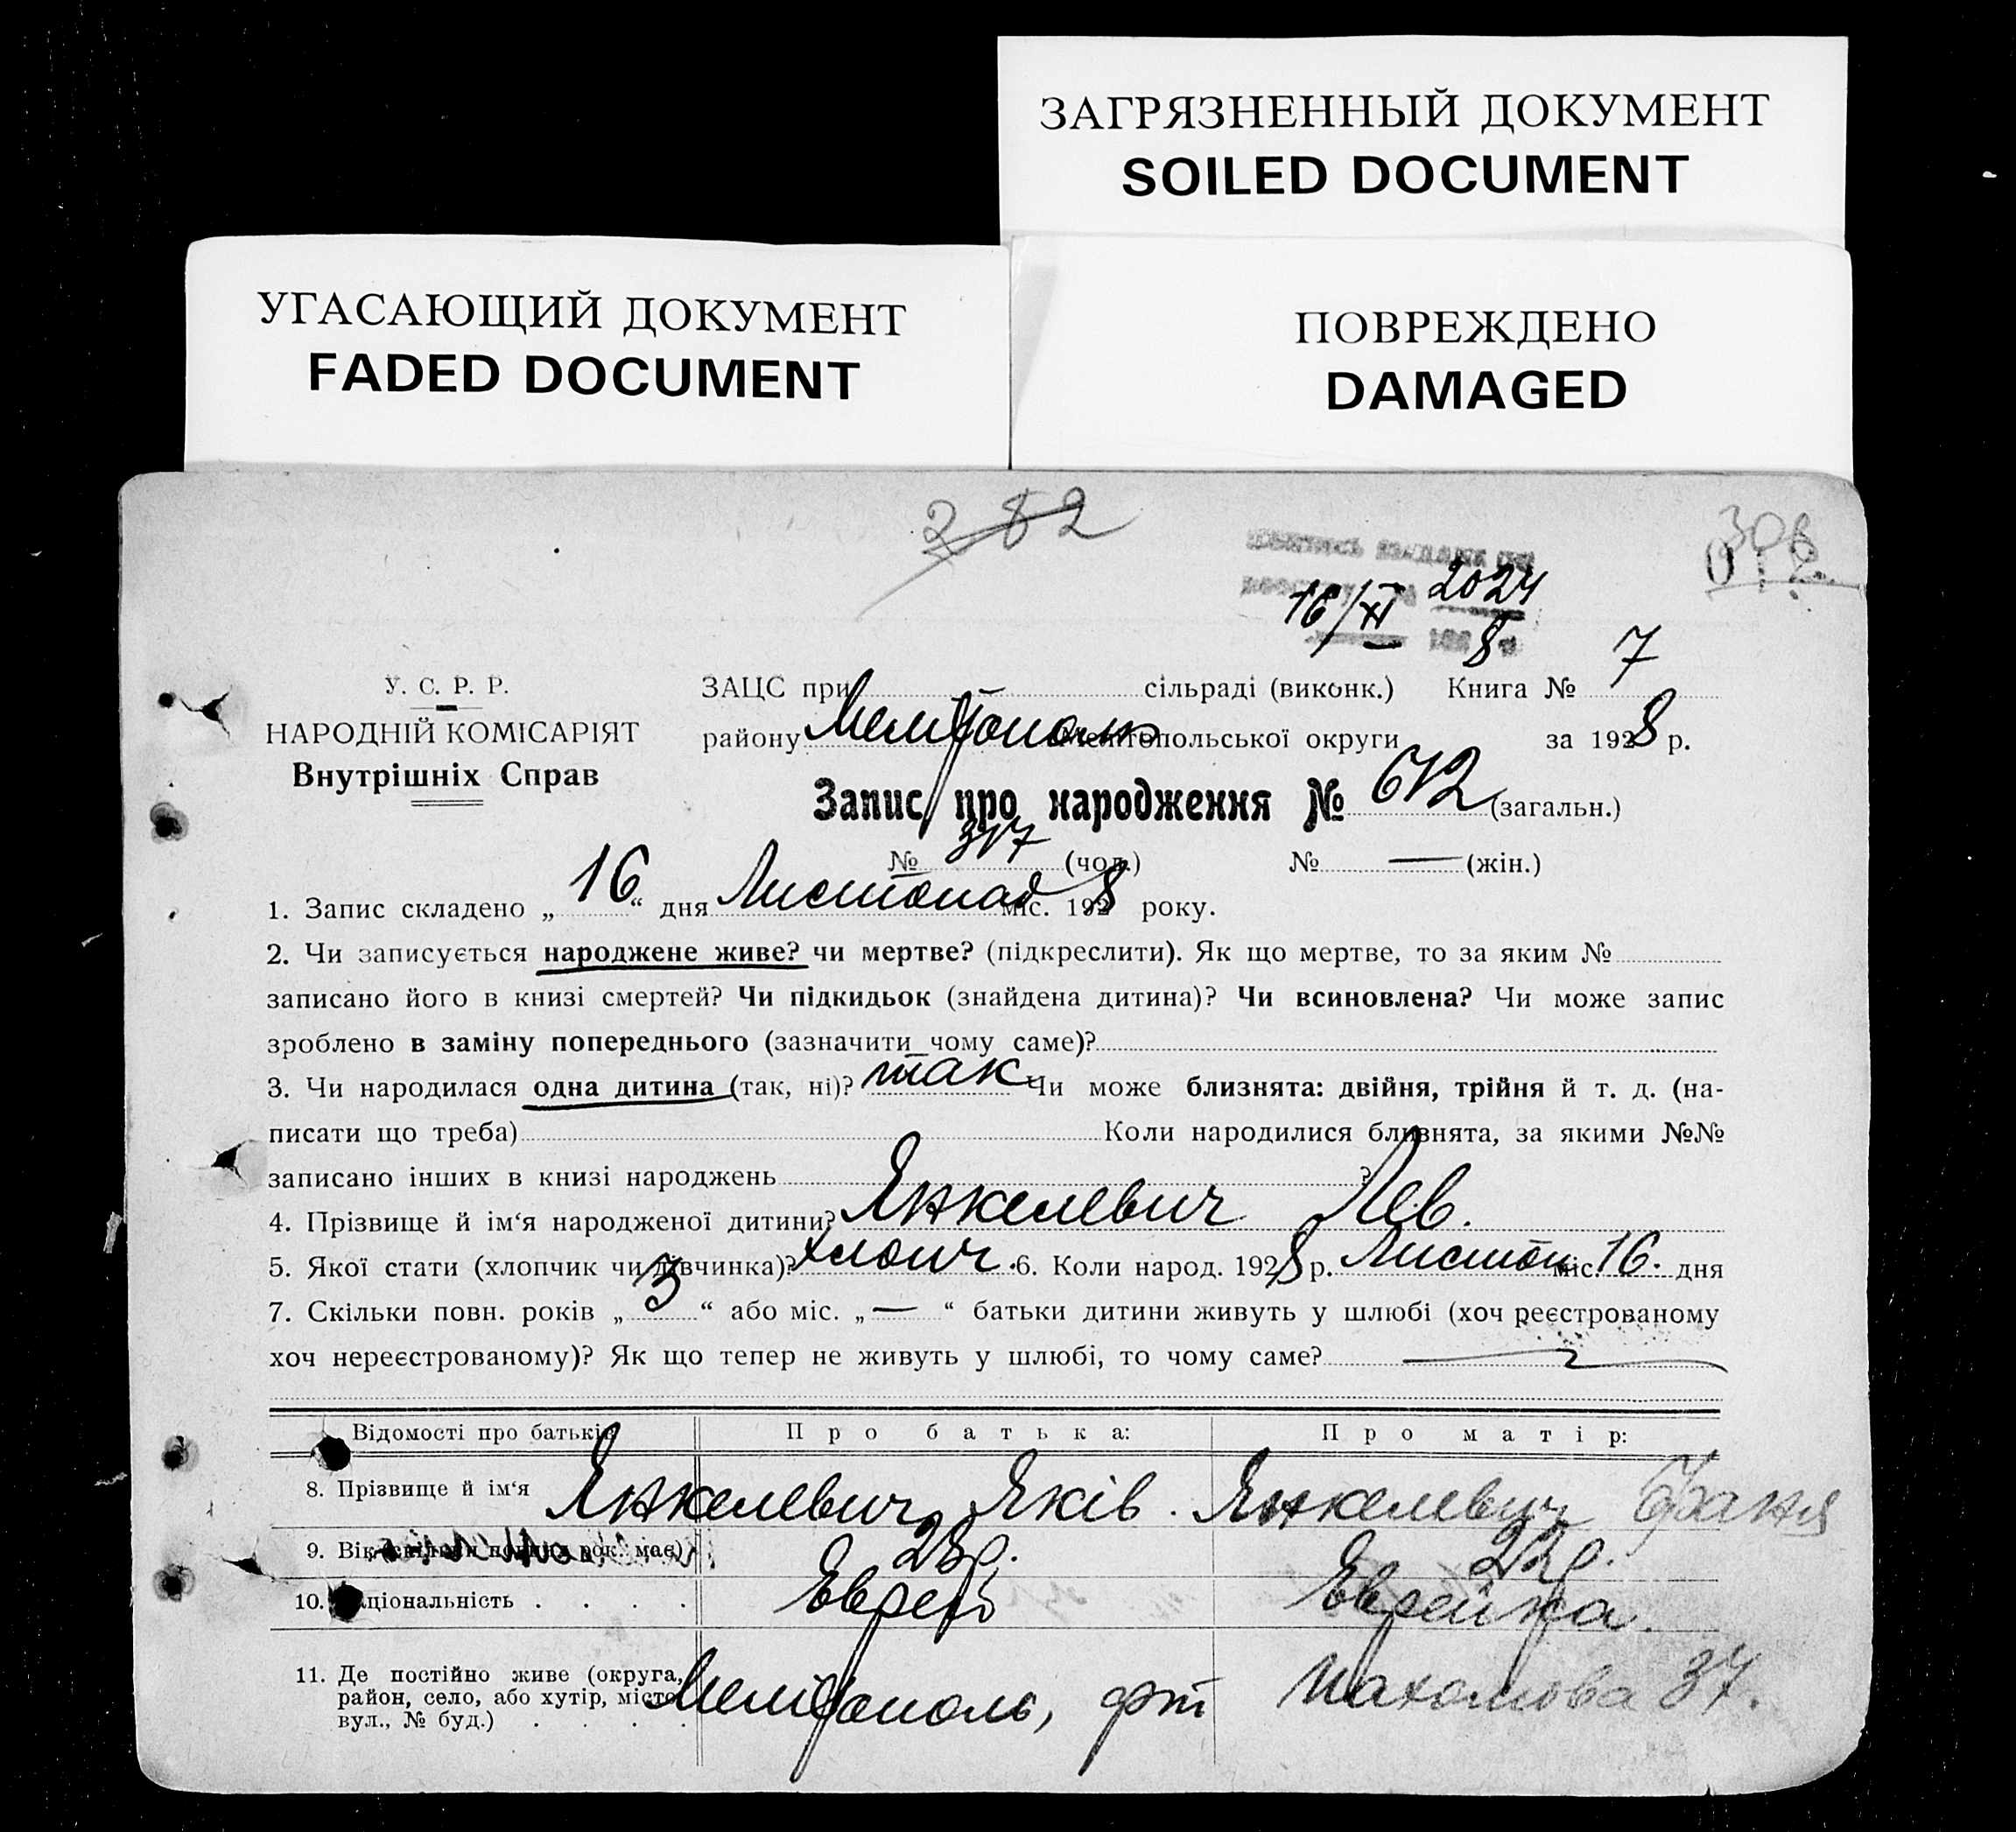 ЗАГРЯЗНЕННЫЙ ДОКУМЕНТ
SOILED DOCUMENT
УГАСАЮЩИЙ ДОКУМЕНТ
FADED DOCUMENT
ПОВРЕЖДЕНО
DAMAGED
282
306
2024
16/XI
8
У. С. Р. Р.
НАРОДНІЙ КОМІСАРІЯТ
Внутрішніх Справ
ЗАЦС при сільраді (виконк.) Книга № 7
району Мелітополь Мелітопольської округи за 1928 р.
Запис про народження № 672 (загальн.)
№ 317 (чол.) № — (жін.)
1. Запис складено „16“ дня Листопад міс. 1928 року.
2. Чи записується народжене живе? чи мертве? (підкреслити). Як що мертве, то за яким №
записано його в книзі смертей? Чи підкидьок (знайдена дитина)? Чи всиновлена? Чи може запис
зроблено в заміну попереднього (зазначити чому саме)?
3. Чи народилася одна дитина (так, ні)? так Чи може близнята: двійня, трійня й т. д. (на-
писати що треба) Коли народилися близнята, за якими №№
записано інших в книзі народжень ?
4. Прізвище й ім‘я народженої дитини? Янкелевич Лев.
5. Якої стати (хлопчик чи дівчинка)? хлопч. 6. Коли народ. 1928 р. Листоп. міс. 16. дня
7. Скільки повн. років „3“ або міс. „—“ батьки дитини живуть у шлюбі (хоч реєстрованому
хоч нереєстрованому)? Як що тепер не живуть у шлюбі, то чому саме?
Відомості про батьків Про батька: Про матір:
8. Прізвище й ім‘я Янкелевич Яків. Янкелевич Фаня
9. Вік (скільки повних рок. має) 28р. 22р.
10. Національність . . . . Еврей Еврейка.
11. Де постійно живе (округа,
район, село, або хутір, місто,
вул., № буд.) . . . . Мелітополь, Пахомова 37.